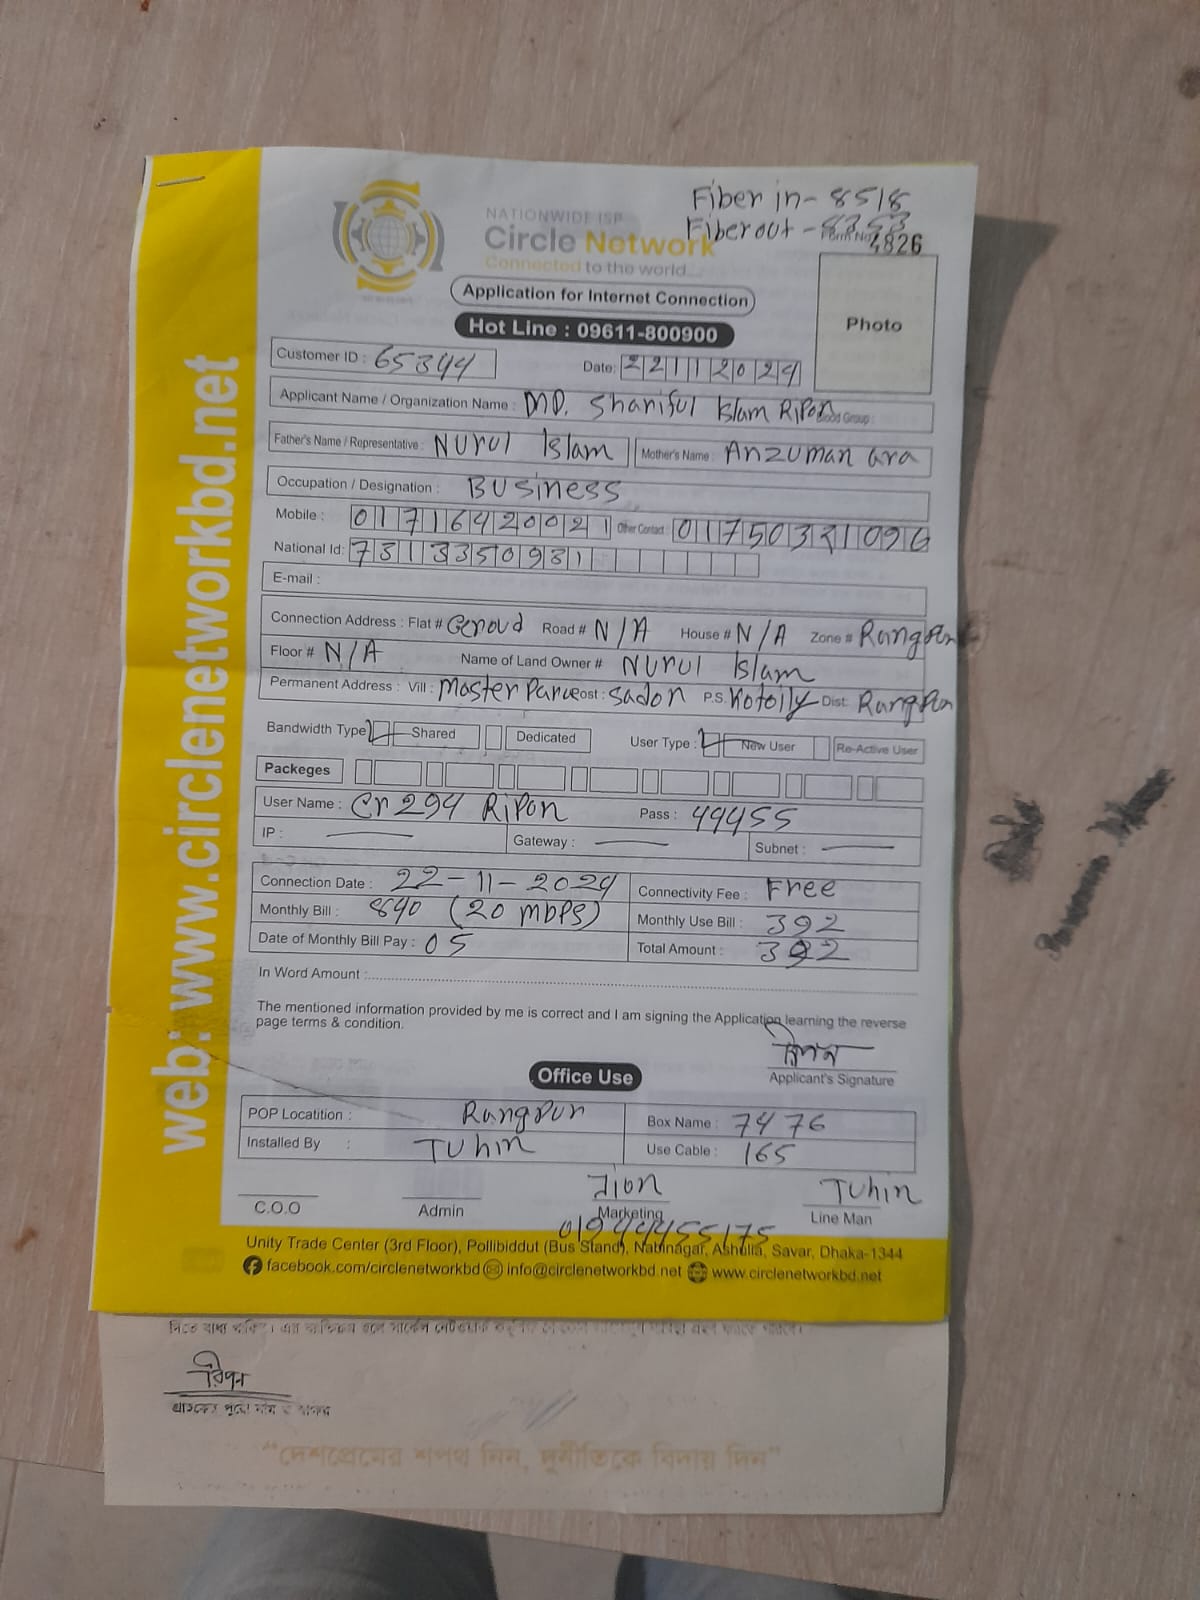 Fiber in- 8518
Fiber out -
Form No
4826
NATIONWIDE ISP
Circle Network
Connected to the world...
Application for Internet Connection
Hot Line : 09611-800900
Photo
Customer ID : 65344
Date: 22112024
Applicant Name / Organization Name : MD. Shariful Islam Ripon Blood Group :
Father's Name / Representative : Nurul Islam Mother's Name : Anzuman ara
Occupation / Designation : Business
Mobile : 01716420021 Other Contact :
National Id: 7313350931
E-mail :
Connection Address : Flat # Geroud Road # N/A House # N/A Zone # Rangpur
Floor # N/A Name of Land Owner # Nurul Islam
Permanent Address : Vill : Master Para Post : Sador P.S. Kotolly Dist: Rangpur
Bandwidth Type Shared Dedicated User Type : New User Re-Active User
Packeges
User Name : Cr294 Ripon Pass : 49455
IP : Gateway : Subnet :
Connection Date : 22-11-2024 Connectivity Fee : Free
Monthly Bill : 840 (20 mbps) Monthly Use Bill : 392
Date of Monthly Bill Pay : 05 Total Amount : 392
In Word Amount :
The mentioned information provided by me is correct and I am signing the Application learning the reverse
page terms & condition.
রিপন
Applicant's Signature
Office Use
POP Locatition : Rangpur Box Name : 7476
Installed By : Tuhin Use Cable : 165
Jion Tuhin
C.O.O Admin Marketing Line Man
01944455175
Unity Trade Center (3rd Floor), Pollibiddut (Bus Stand), Nabinagar, Ashulia, Savar, Dhaka-1344
facebook.com/circlenetworkbd info@circlenetworkbd.net www.circlenetworkbd.net
web: www.circlenetworkbd.net
রিপন
গ্রাহকের পুরো নাম ও স্বাক্ষর
“দেশপ্রেমের শপথ নিন, দুর্নীতিকে বিদায় দিন”